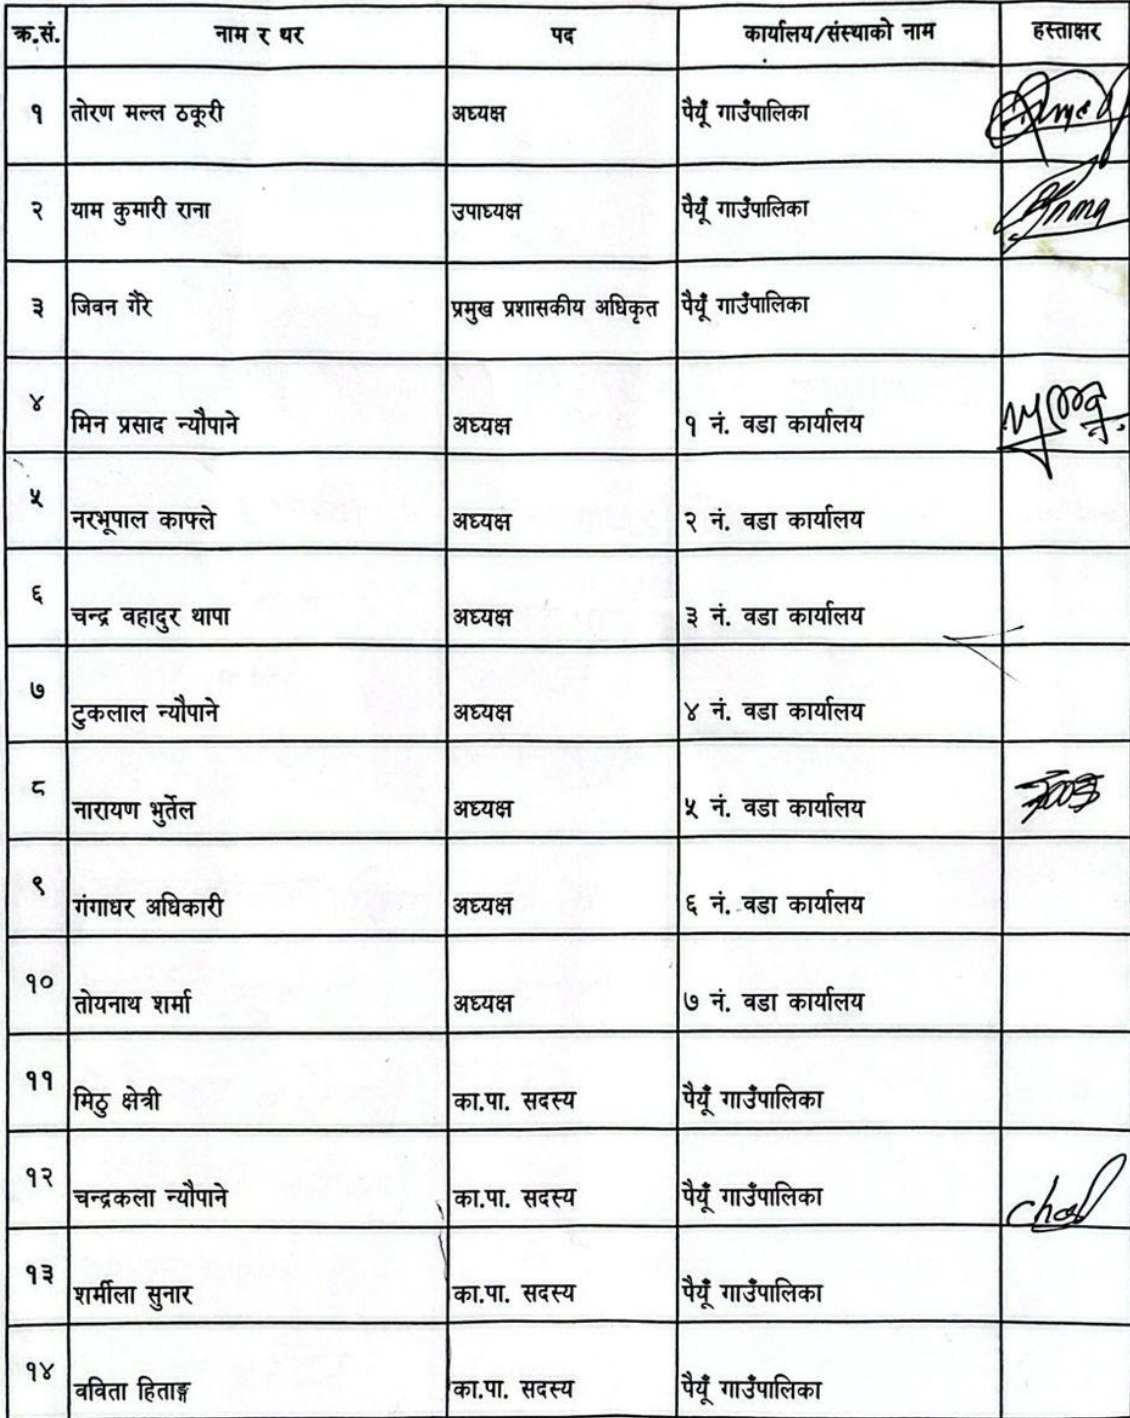 क्र.सं. नाम र थर पद कार्यालय/संस्थाको नाम हस्ताक्षर
१ तोरण मल्ल ठकूरी अध्यक्ष पैयूँ गाउँपालिका
२ याम कुमारी राना उपाध्यक्ष पैयूँ गाउँपालिका
३ जिवन गैरे प्रमुख प्रशासकीय अधिकृत पैयूँ गाउँपालिका
४ मिन प्रसाद न्यौपाने अध्यक्ष १ नं. वडा कार्यालय
५ नरभूपाल काफ्ले अध्यक्ष २ नं. वडा कार्यालय
६ चन्द्र वहादुर थापा अध्यक्ष ३ नं. वडा कार्यालय
७ टुकलाल न्यौपाने अध्यक्ष ४ नं. वडा कार्यालय
८ नारायण भुर्तेल अध्यक्ष ५ नं. वडा कार्यालय
९ गंगाधर अधिकारी अध्यक्ष ६ नं. वडा कार्यालय
१० तोयनाथ शर्मा अध्यक्ष ७ नं. वडा कार्यालय
११ मिठु क्षेत्री का.पा. सदस्य पैयूँ गाउँपालिका
१२ चन्द्रकला न्यौपाने का.पा. सदस्य पैयूँ गाउँपालिका
१३ शर्मीला सुनार का.पा. सदस्य पैयूँ गाउँपालिका
१४ वविता हिताङ्ग का.पा. सदस्य पैयूँ गाउँपालिका